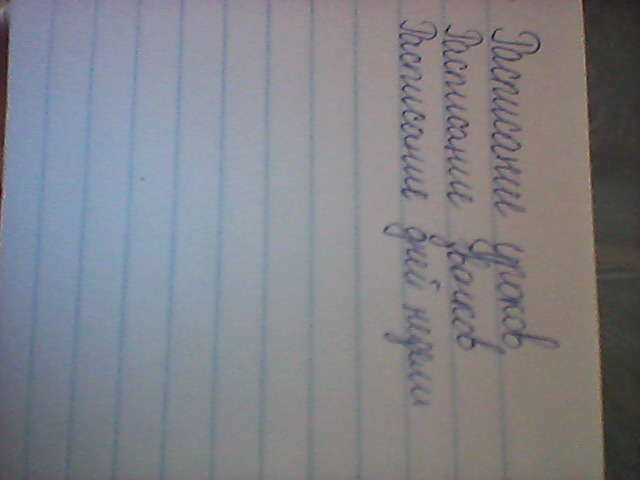 Расписание уроков
Расписание звонков
Расписание дней недели